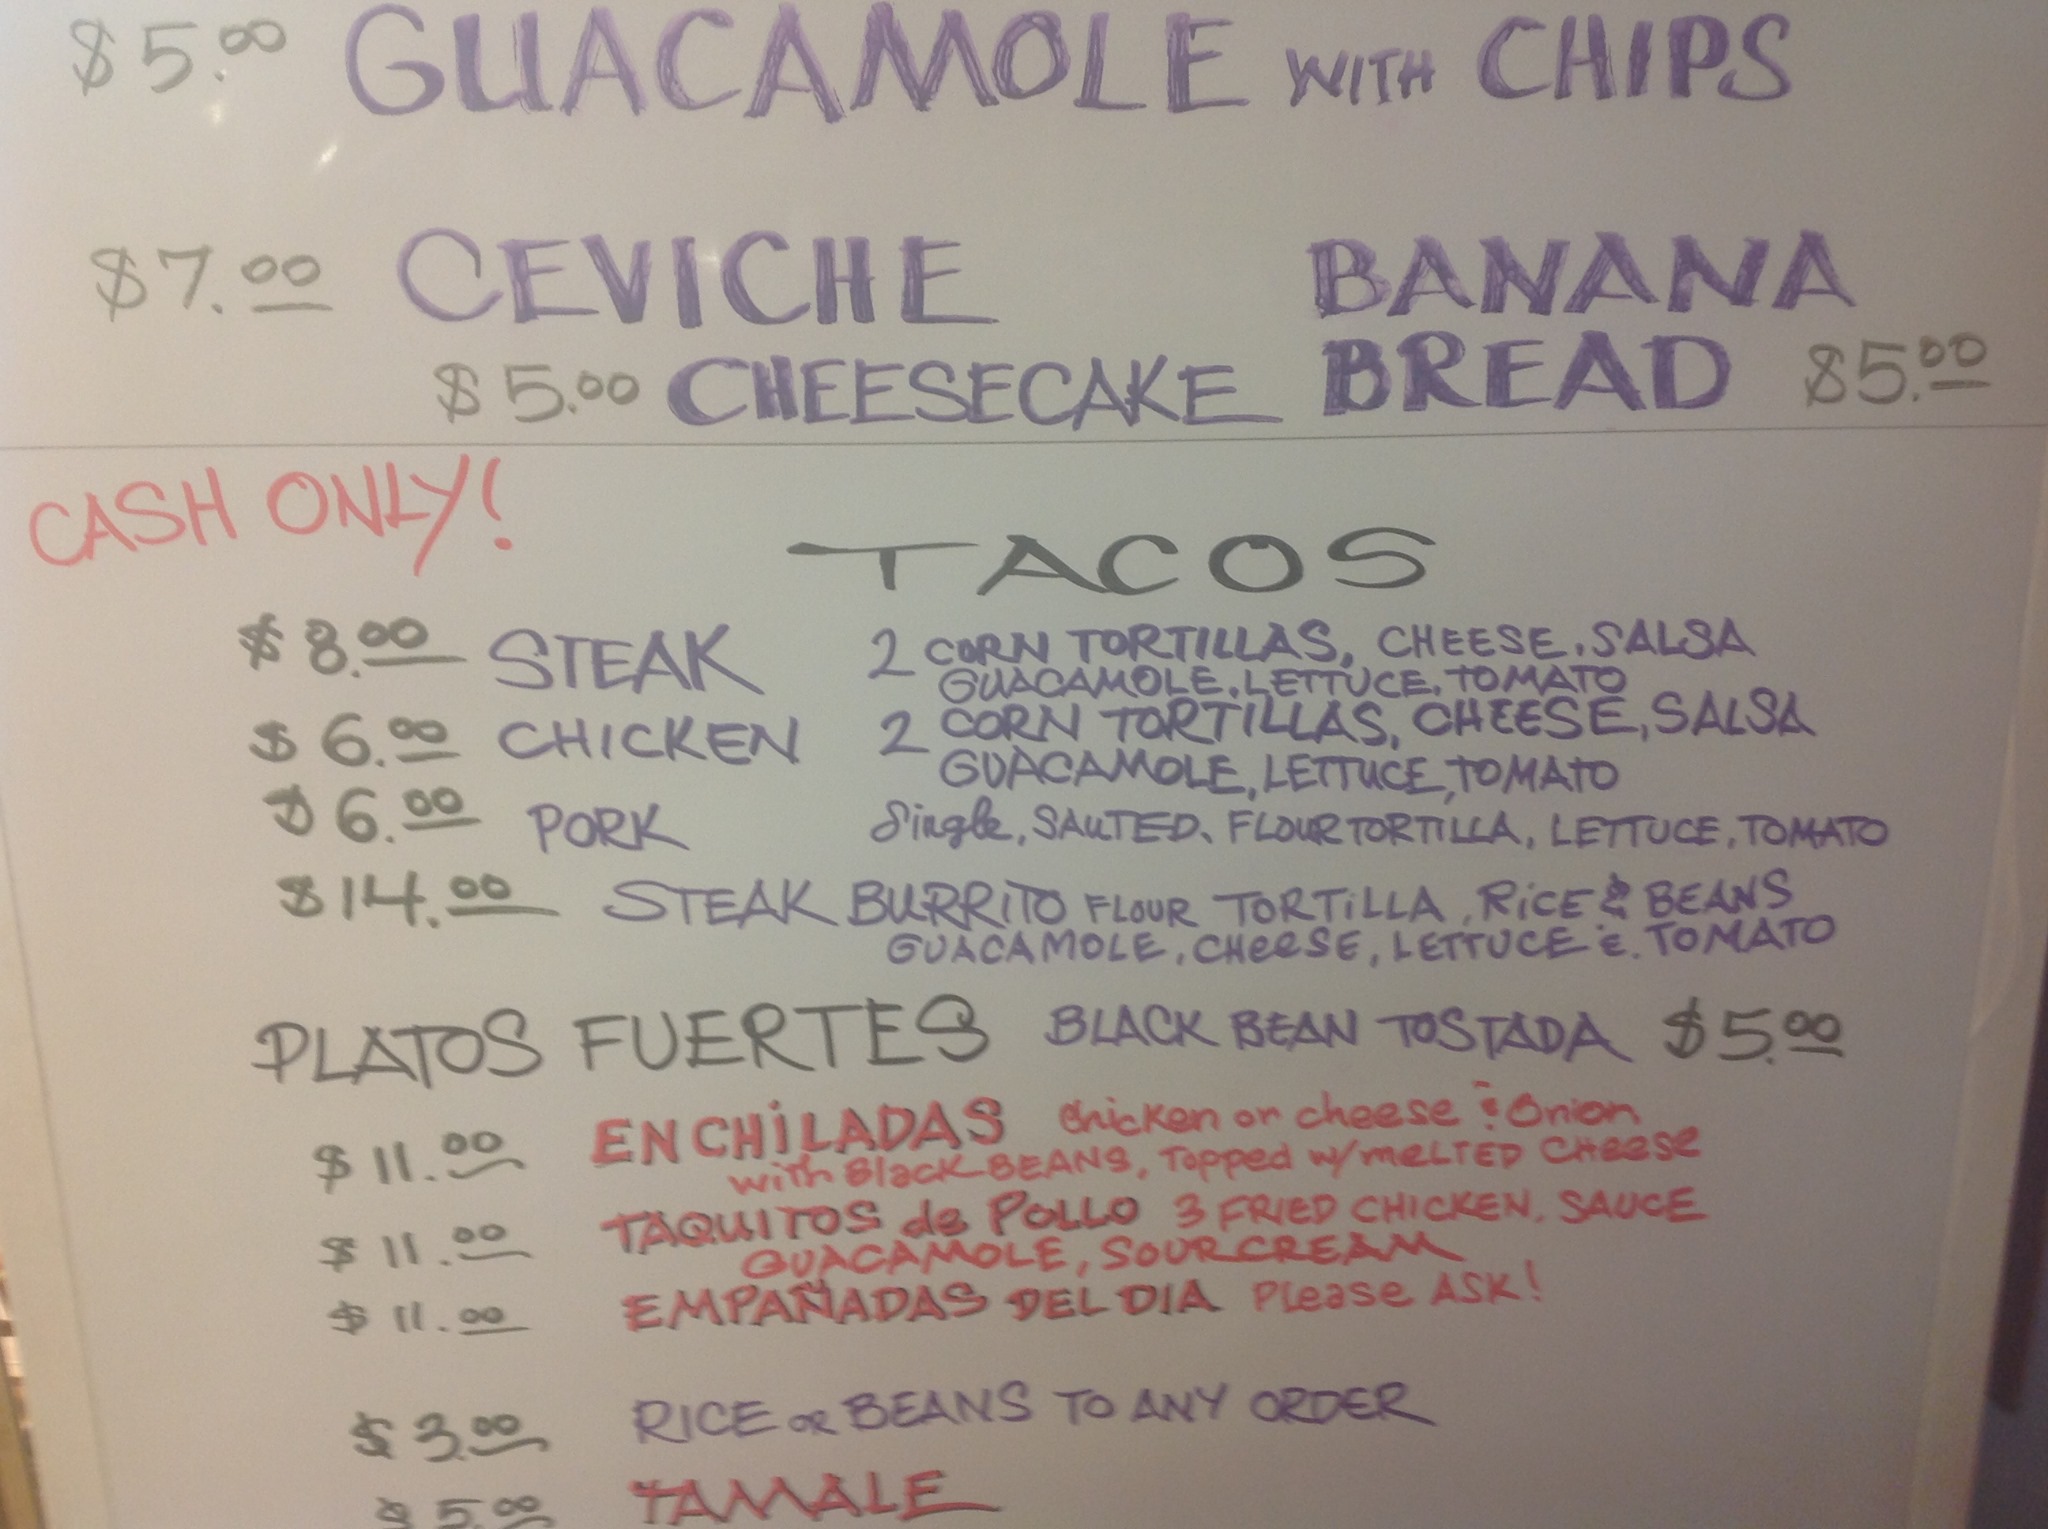 $5.00 GUACAMOLE WITH CHIPS
$7.00 CEVICHE
BANANA
$5.00 CHEESECAKE
BREAD $5.00
CASH ONLY!
TACOS
$8.00 STEAK 2 CORN TORTILLAS, CHEESE, SALSA
GUACAMOLE, LETTUCE, TOMATO
$6.00 CHICKEN 2 CORN TORTILLAS, CHEESE, SALSA
GUACAMOLE, LETTUCE, TOMATO
$6.00 PORK Single, SAUTED, FLOUR TORTILLA, LETTUCE, TOMATO
$14.00 STEAK BURRITO FLOUR TORTILLA, RiCE & BEANS
GUACAMOLE, CHEESE, LETTUCE & TOMATO
PLATOS FUERTES BLACK BEAN TOSTADA $5.00
$11.00 ENCHiLADAS Chicken or cheese & Onion
with Black BEANS, Topped w/MELTED CHeese
$11.00 TAQUITOS de POLLO 3 FRIED CHICKEN, SAUCE
GUACAMOLE, SOUR CREAM
$11.00 EMPAÑADAS DEL DIA Please ASK!
$3.00 RICE OR BEANS TO ANY ORDER
$5.00 TAMALE